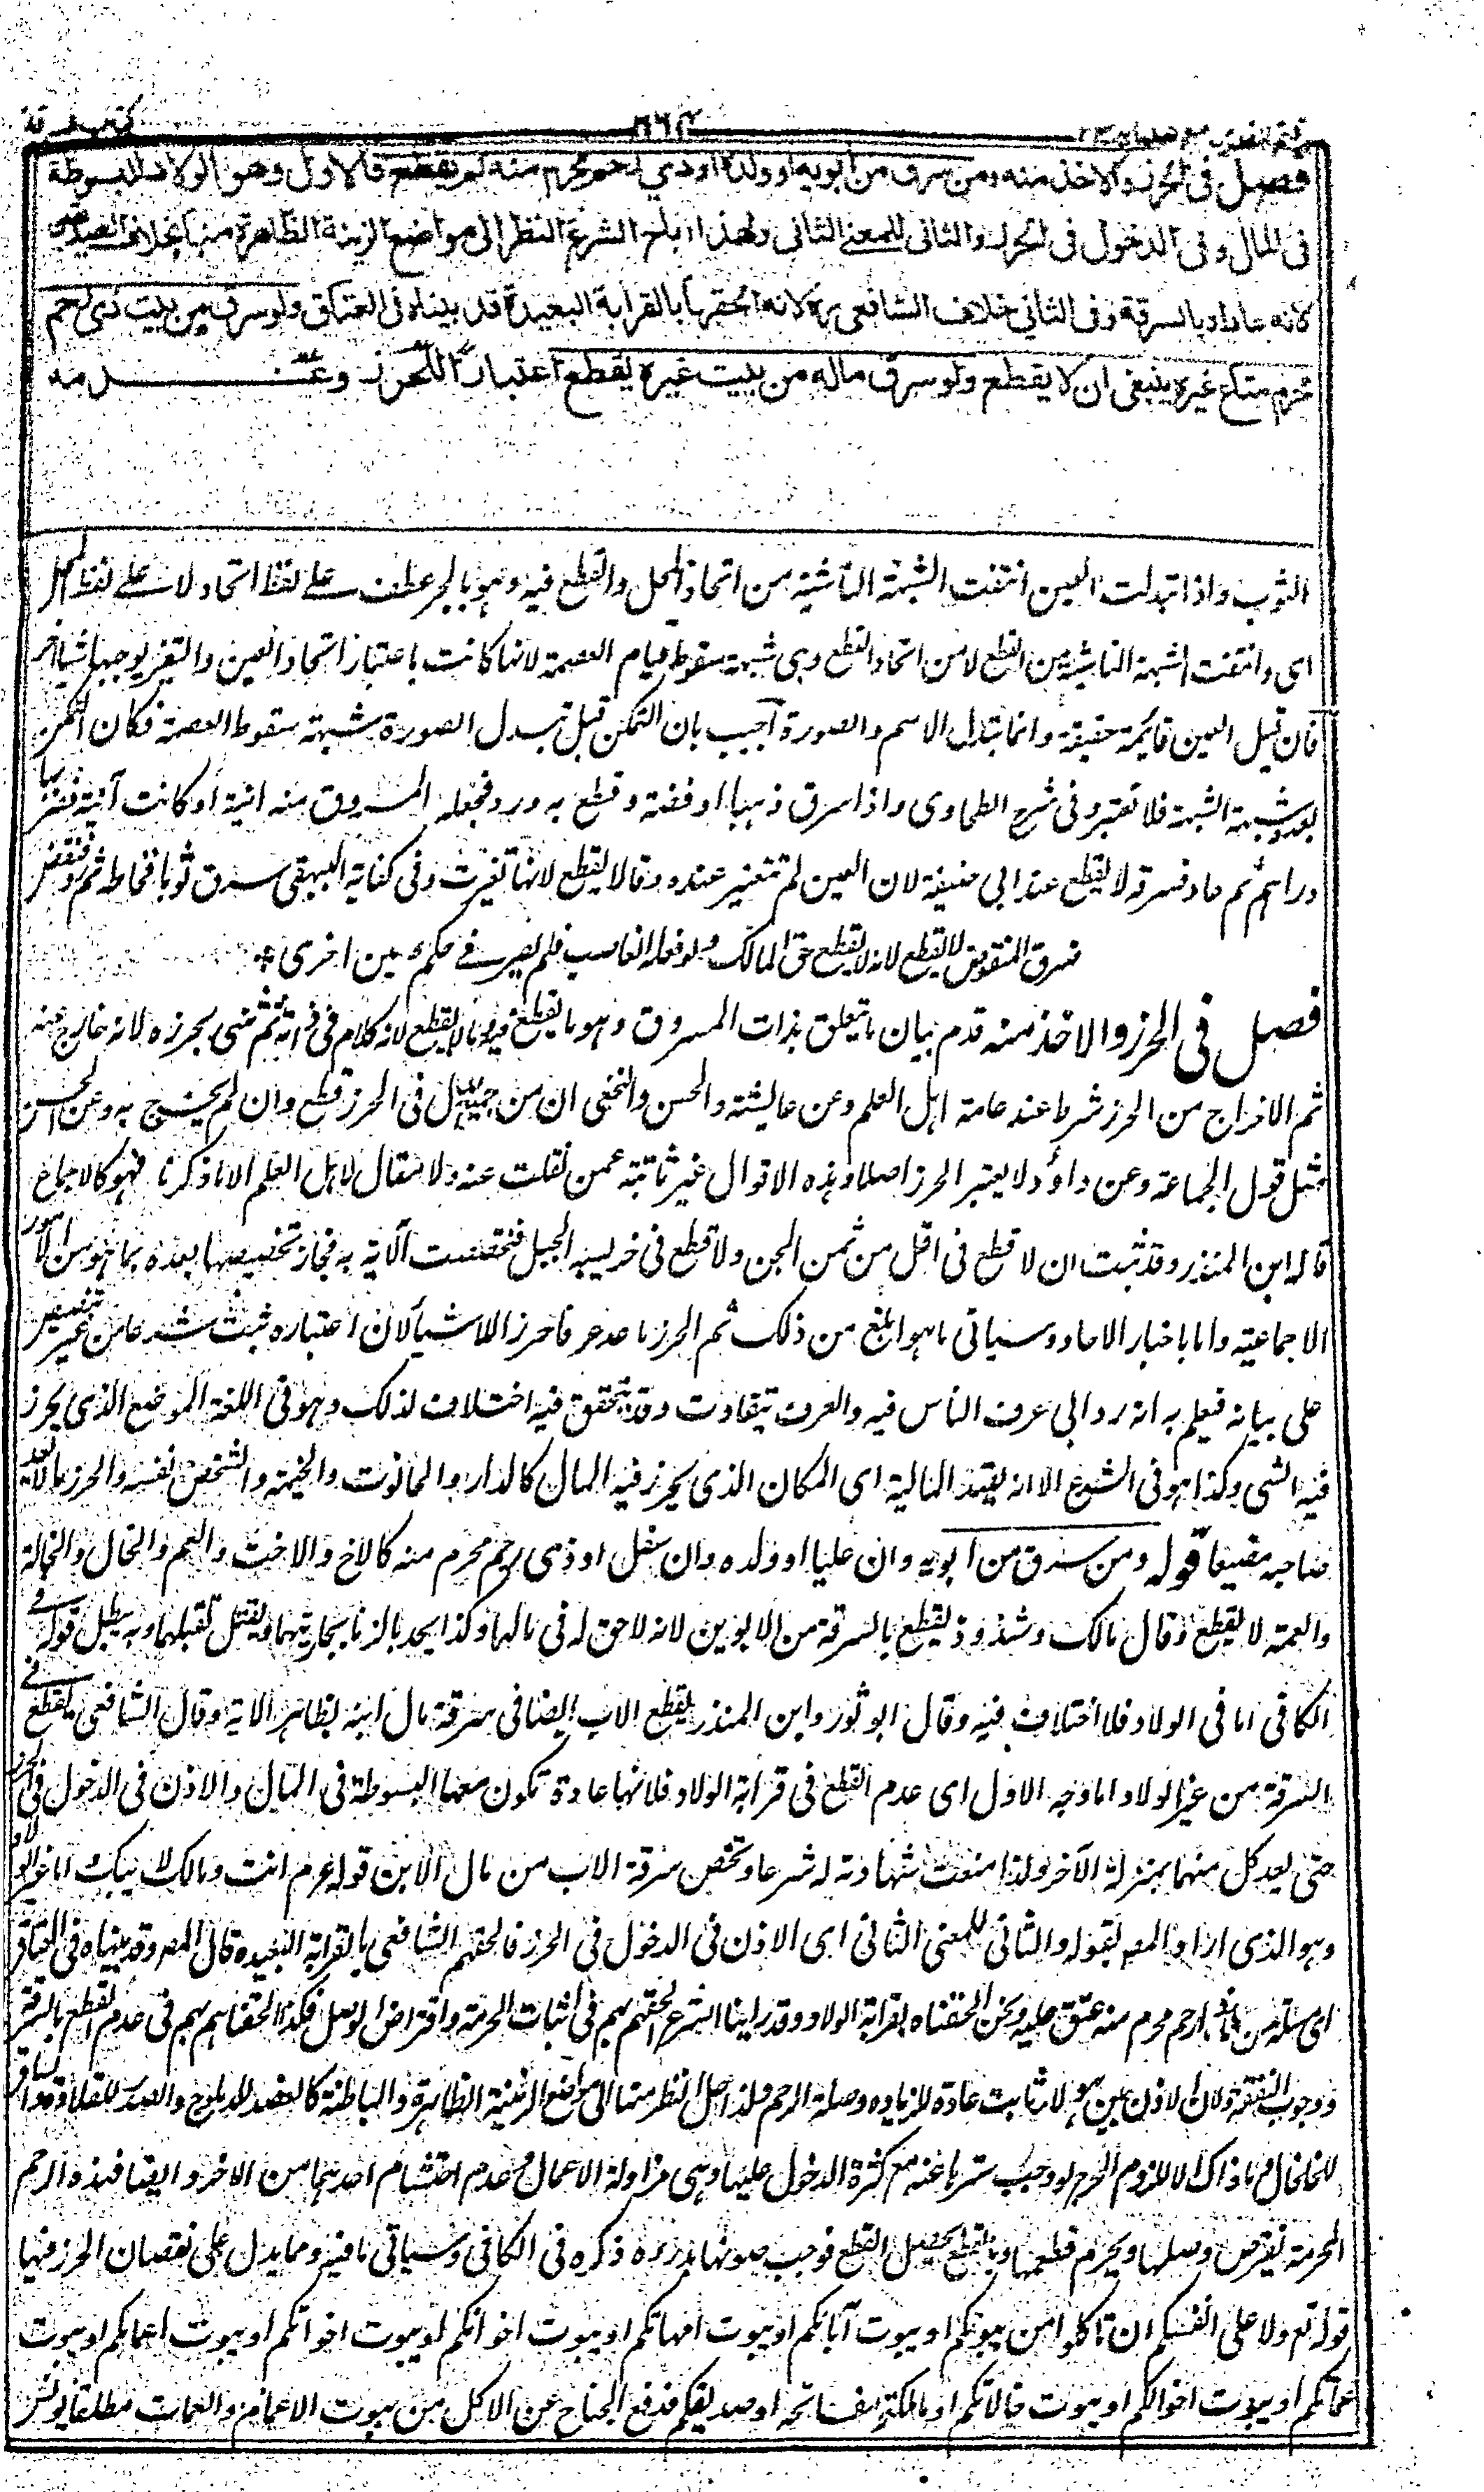 فصل في الحرز والاخذ منه ومن سرق من ابويه او ولده او ذي رحم محرم منه لم يقطع فالاول وهو الولاد للبسوطة
في المال وفي الدخول في الحرز والثاني للمعنى الثاني ولهذا اباح الشرع النظر الى مواضع الزينة الظاهرة منها بخلاف الصديق
لانه عاداه بالسرقة وفي الثاني خلاف الشافعي رح لانه الحقها بالقرابة البعيدة وقد بيناه في العتاق ولو سرق من بيت ذي رحم
محرم متاع غيره ينبغي ان لا يقطع ولو سرق ماله من بيت غيره يقطع اعتبارا للحرز وعدمه
الثوب واذا تبدلت العين انتفت الشبهة الناشئة من اتحاد المحل والقطع فيه وهو بالجر عطف على لفظ اتحاد لا على لفظ المحل
اى وانتفت الشبهة الناشئة من القطع لا من اتحاد القطع وهى شبهة سقوط قيام العصمة لانها كانت باعتبار اتحاد العين والتغير يوجبها شيأ آخر
فان قيل العين قائمة حقيقة وانما تبدل الاسم والصورة اجيب بان التمكن قبل تبدل الصورة شبهة سقوط العصمة فكان التمكن
بعده شبهة الشبهة فلا تعتبر وفى شرح الطحاوى واذا سرق ذهبا او فضة وقطع به ورد فجعله المسروق منه انية او كانت آنية فضربها
دراهم ثم عاد فسرقه لا يقطع عند ابى حنيفة لان العين لم تتغير عنده وقالا يقطع لانها تغيرت وفى كفاية البيهقى سرق ثوبا فخاطه ثم رد فنقض
فسرق المنقوض لا يقطع لانه لا يقطع حق المالك ولو فعله الغاصب فلم يصر فى حكم عين اخرى
فصل فى الحرز والاخذ منه قدم بيان ما يتعلق بذات المسروق وهو ما يقطع فيه وما لا يقطع لانه كلام فى ذاته ثم ثنى بحرزه لانه خارج عنه
ثم الاخراج من الحرز شرط عند عامة اهل العلم وعن عايشة والحسن والنخعى ان من جمع المال فى الحرز قطع وان لم يخرج به وعن الحسن
مثل قول الجماعة وعن داؤد لا يعتبر الحرز اصلا وهذه الاقوال غير ثابتة عمن نقلت عنه ولا مقال لاهل العلم الا ما ذكرنا فهو كالاجماع
قاله ابن المنذر وقد ثبت ان لا قطع فى اقل من ثمن المجن ولا قطع فى حريسة الجبل فتخصصت الآية به فجاز تخصيصها بعده بما هو من الامور
الاجماعية واما باخبار الاحاد وسياتى ما هو ابلغ من ذلك ثم الحرز ما عد عرفا حرزا للاشيأ لان اعتباره ثبت شرعا من غير تنصيص
على بيانه فيعلم به انه رد الى عرف الناس فيه والعرف يتفاوت وقد يتحقق فيه اختلاف لذلك وهو فى اللغة الموضع الذى يحرز
فيه الشى وكذا هو فى الشرع الا انه بقيد المالية اى المكان الذى يحرز فيه المال كالدار والحانوت والخيمة والشخص نفسه والحرز ما لا يعد
صاحبه مضيعا قوله ومن سرق من ابويه وان عليا او ولده وان سفل او ذى رحم محرم منه كالاخ والاخت والعم والخال والخالة
والعمة لا يقطع وقال مالك وشذوذ يقطع بالسرقة من الابوين لانه لا حق له فى مالهما وكذا يحد بالزنا بجاريتهما ويقتل بقتلهما وبه يبطل قوله فى
الكافى اما فى الولاد فلا اختلاف فيه وقال ابو ثور وابن المنذر يقطع الاب ايضا فى سرقة مال ابنه بظاهر الاية وقال الشافعى يقطع فى
السرقة من غير الولاد اما وجه الاول اى عدم القطع فى قرابة الولاد فلانها عادة تكون معها البسوطة فى المال والاذن فى الدخول فى الحرز
حتى يعد كل منهما بمنزلة الآخر ولذا منعت شهادته له شرعا وتخص سرقة الاب من مال الابن قوله عم انت ومالك لابيك اما غير الولاد
وهو الذى اراد المصـ بقوله والثانى للمعنى الثانى اى الاذن فى الدخول فى الحرز فالحقهم الشافعى بالقرابة البعيدة قال المصـ وقد بيناه فى العتاق
اى مسئلة من ملك ذا رحم محرم منه عتق عليه ونحن الحقناه بقرابة الولاد وقد راينا الشرع الحقهم بهم فى اثبات الحرمة وافتراض الوصل فكذا الحقناهم بهم فى عدم القطع بالسرقة
ووجوب النفقة ولان الاذن بين هؤلاء ثابت عادة للزيادة وصلة الرحم ولذا حل النظر منها الى مواضع الزينة الظاهرة والباطنة كالعضد للدملوج والصدر للقلادة والساق
للخلخال وما ذاك الا للزوم الحرج لو وجب سترها عنه مع كثرة الدخول عليها وهى مزاولة الاعمال وعدم احتشام احدهما من الاخر وايضا فهذه الرحم
المحرمة يفترض وصلها ويحرم قطعها وبالقطع يحصل القطع فوجب صونها بدرءه ذكره فى الكافى وسياتى ما فيه ومما يدل على نقصان الحرز فيها
قوله تع ولا على انفسكم ان تاكلوا من بيوتكم او بيوت آبائكم او بيوت امهاتكم او بيوت اخوانكم او بيوت اخواتكم او بيوت اعمامكم او بيوت
عماتكم او بيوت اخوالكم او بيوت خالاتكم او ما ملكتم مفاتحه او صديقكم فدفع الجناح عن الاكل من بيوت الاعمام والعمات مطلقا يونس